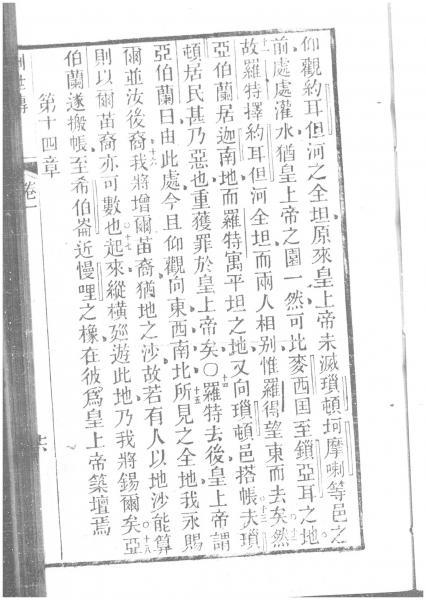 仰觀約耳但河之全坦原來皇上帝未滅瑣頓坷摩喇等邑之
前處處灌水猶皇上帝之園一然可比麥西国至鎖亞耳之地
十一故羅特擇約耳但河全坦而兩人相別惟羅得望東而去矣然
亞伯蘭居迦南地而羅特寓平坦之地又向瑣頓邑搭帳夫瑣
頓居民甚乃惡也重獲罪於皇上帝矣〇十四羅特去後皇上帝謂
亞伯蘭曰由此處今且仰觀向東西南北十五所見之全地我永賜
爾並汝後裔十六我將增爾苗裔猶地之沙故若有人以地沙能算
則以爾苗裔亦可數也十七起來縱橫廵遊此地乃我將錫爾矣十八亞
伯蘭遂搬帳至希伯崙近慢哩之橡在彼爲皇上帝築壇焉
第十四章
世傳
卷一